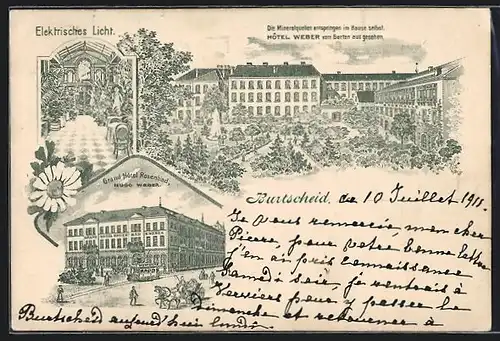 Elektrisches Licht.
Die Mineralquellen entspringen im Hause selbst.
HÔTEL WEBER vom Garten aus gesehen.
Grand Hôtel Rosenbad.
HUGO WEBER.
Burtscheid, de 10 Juillet 1911.
Je vous remercie, mon cher
Pierre, pour votre bonne lettre
j'en ai pris connaissance
Samedi soir, je rentrais à
Verviers pour y passer le
Dimanche et retourner à
Burtscheid aujourd'hui lundi.